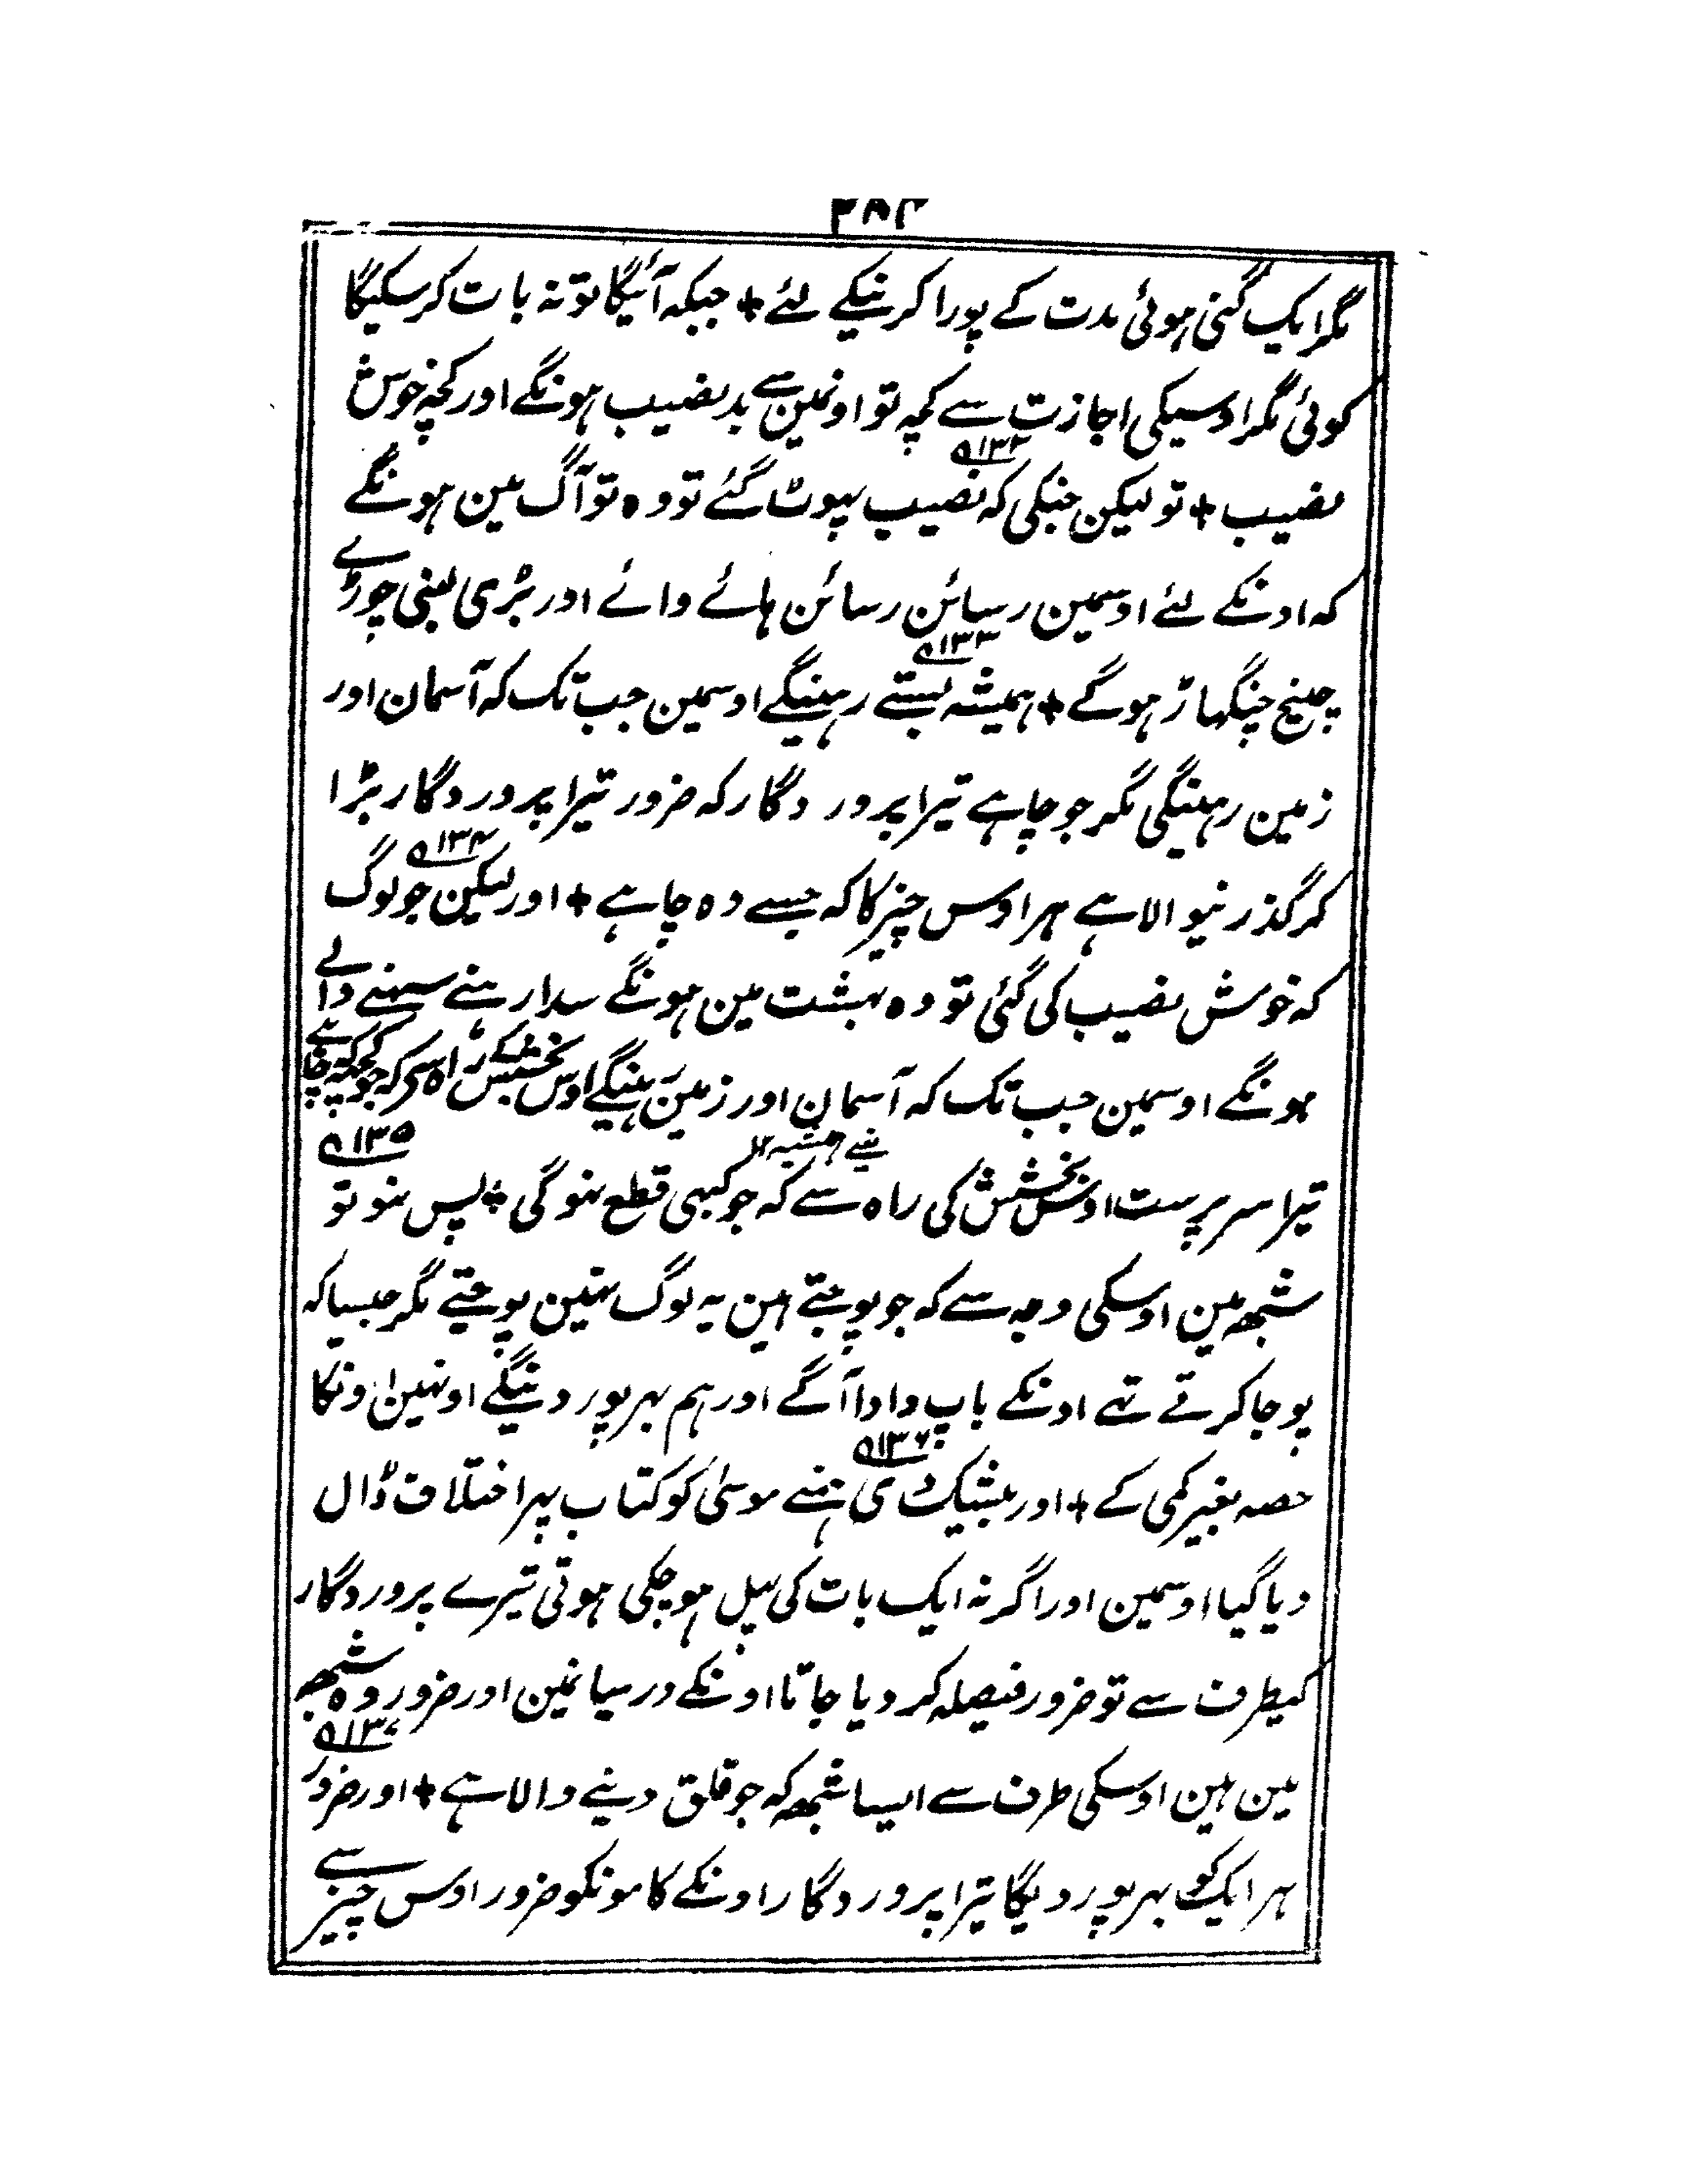 ۳۸۳
مگر ایک گنی ہوئی مدت کے پورا کرنیکے لئے + جبکہ آئیگا تو نہ بات کر سکیگا
کوئی مگر اوسیکی اجازت سے کچہ تو اونمین سے بدنصیب ہونگے اور کچہ خوش
نصیب + تو لیکن جنکی کہ نصیب پہوٹ گئے تو وہ تو آگ مین ہونگے
کہ اونکے لئے اوسمین رسائن رسائن ہائے وائے اور بڑی لنبی چوڑے
چینخ چنگہاڑ ہوگے + ہمیشہ بستے رہینگے اوسمین جب تک کہ آسمان اور
زمین رہینگی مگر جو چاہے تیرا پرور دگار کہ ضرور تیرا پروردگار بڑا
کر گذرنیوالا ہے ہر اوس چیز کا کہ جسے وہ چاہے + اور لیکن جو لوگ
کہ خوش نصیب کی گئی تو وہ بہشت مین ہونگے سدا رہنے سہنے والے
ہونگے اوسمین جب تک کہ آسمان اور زمین رہینگے اوس بخشش کے راہ سے کہ جو کچہ کہ چاہے
تیرا سرپرست اوس بخشش کی راہ سے کہ جو کبہی قطع نہوگی + پس نہو تو
شبھہ مین اوسکی وجہ سے کہ جو پوجتے ہین یہ لوگ نہین پوجتے مگر جیسا کہ
پوجا کرتے تہے اونکے باپ دادا آگے اور ہم بہرپور دینگے اونہین اونکا
حصہ بغیر کمی کے + اور بیشک دی ہمنے موسیٰ کو کتاب پہر اختلاف ڈال
دیا گیا اوسمین اور اگر نہ ایک بات کی پہل ہو چکی ہوتی تیرے پروردگار
کیطرف سے تو ضرور فیصلہ کر دیا جاتا اونکے درمیانمین اور ضرور وہ شبھہ
مین ہین اوسکی طرف سے ایسا شبھہ کہ جو قلق دینے والا ہے + اور ضرور
ہر ایک کو بہرپور دیگا تیرا پروردگار اونکے کامونکو ضرور اوس چیز سے